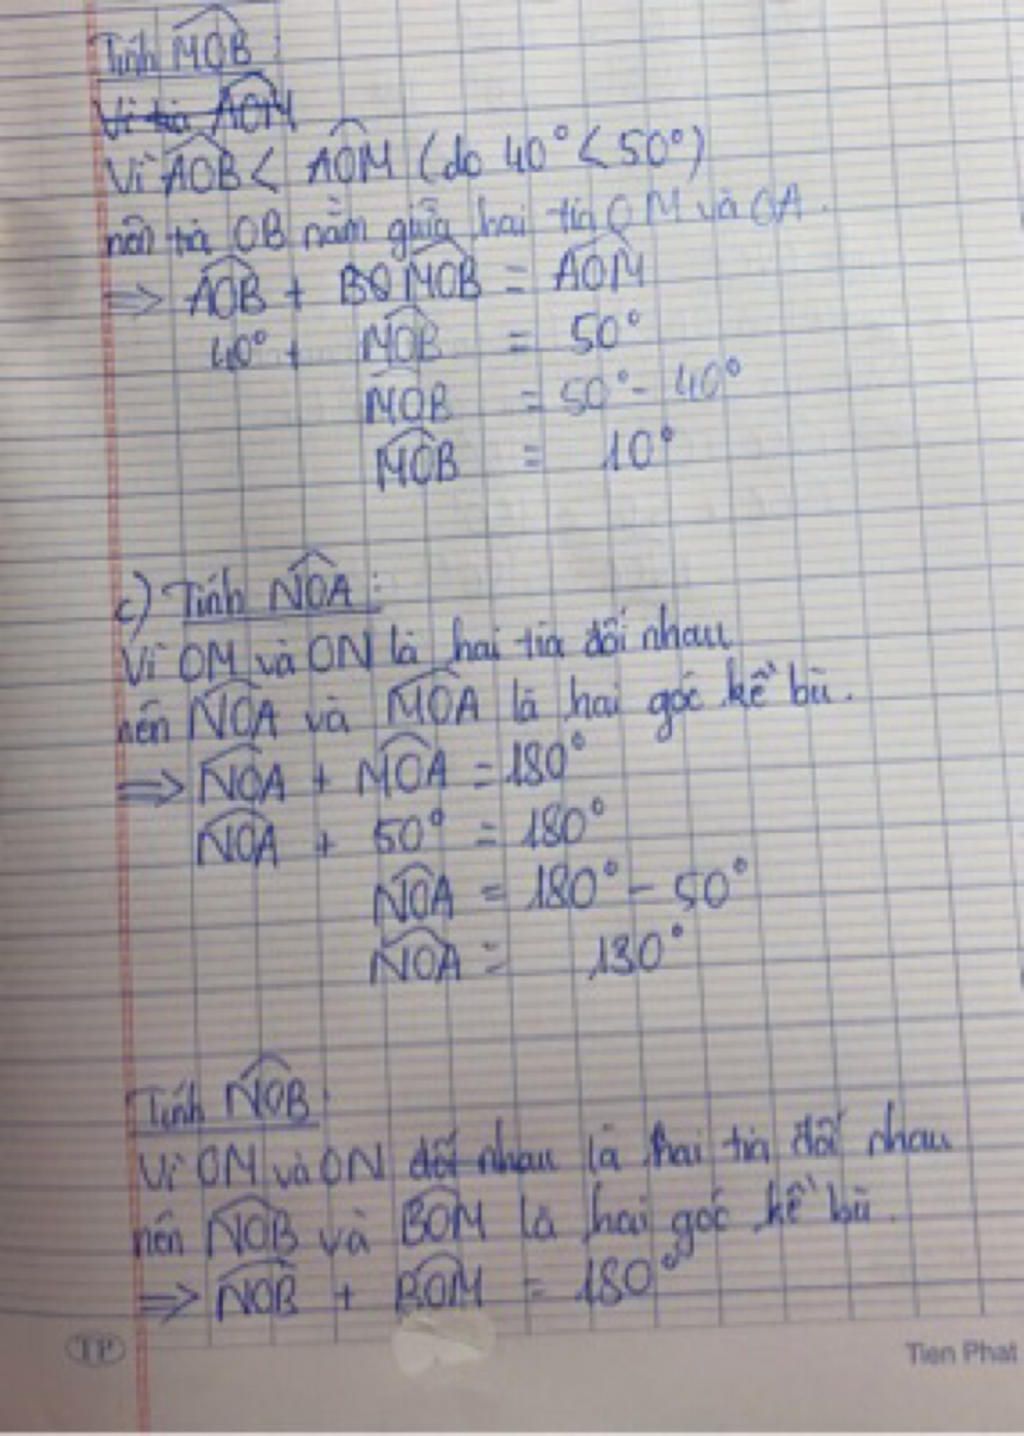 Tính MOB :
Vì tia AOM
Vì AOB < AOM (do 40° < 50°)
nên tia OB nằm giữa hai tia OM và OA.
=> AOB + BOMOB = AOM
40° + MOB = 50°
MOB = 50° - 40°
MOB = 10°
c) Tính NOA :
Vì OM và ON là hai tia đối nhau
nên NOA và MOA là hai góc kề bù.
=> NOA + MOA = 180°
NOA + 50° = 180°
NOA = 180° - 50°
NOA = 130°
Tính NOB :
Vì OM và ON đối nhau là hai tia đối nhau
nên NOB và BOM là hai góc kề bù.
=> NOB + BOM = 180°
TP
Tien Phat